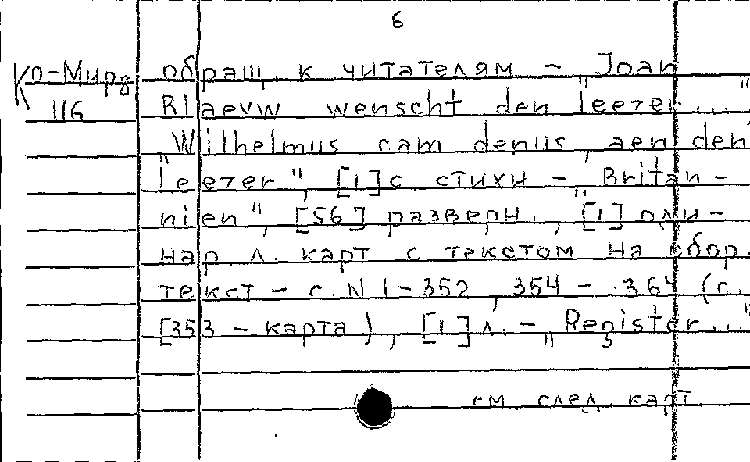 6
Ко-Мирд обращ. к читателям – „Joan
116 Blaevw wenscht den leezer..."
„Wilhelmus cam denus, aen den
leezer", [1] с стихи – „Britan-
nien", [56] разверн., [1] оди-
нар л. карт с текстом на обор.
текст – с. N 1–352, 354 – 364 (с.
[353 – карта), [1] л. – „Register..."
см. след. карт.